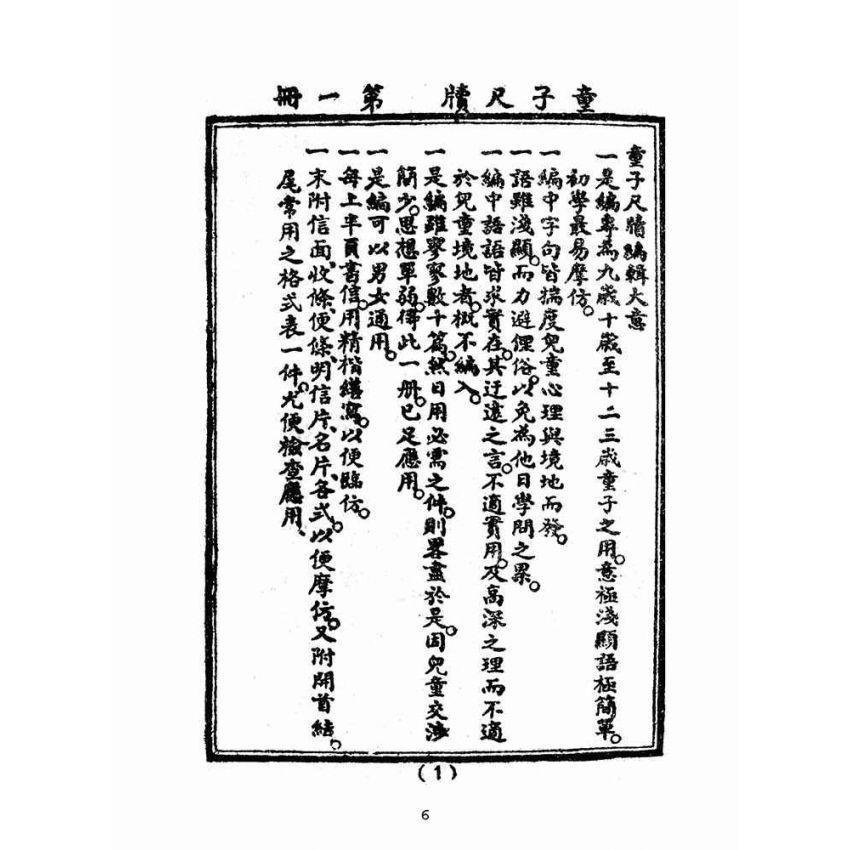 童子尺牘 第一冊
童子尺牘編輯大意
一是編專為九歲十歲至十二三歲童子之用。意極淺顯語極簡單。
初學最易摩仿。
一編中字句皆揣度兒童心理與境地而發。
一語雖淺顯。而力避俚俗。以免為他日學問之累。
一編中語語皆求實在。其迂遠之言。不適實用。及高深之理而不適
於兒童境地者。概不編入。
一是編雖寥寥數十篇。然日用必需之件。則畧盡於是。因兒童交涉
簡少。思想單弱。得此一册。已足應用。
一是編可以男女通用。
一每上半頁書信。用精楷繕寫。以便臨仿。
一末附信面、收條、便條、明信片、名片、各式。以便摩仿。又附開首結。
尾常用之格式表一件。尤便檢查應用、
(1)
6